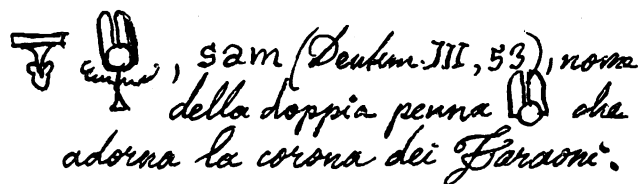 , sam (Denkm. III, 53), nome
della doppia penna che
adorna la corona dei Faraoni.